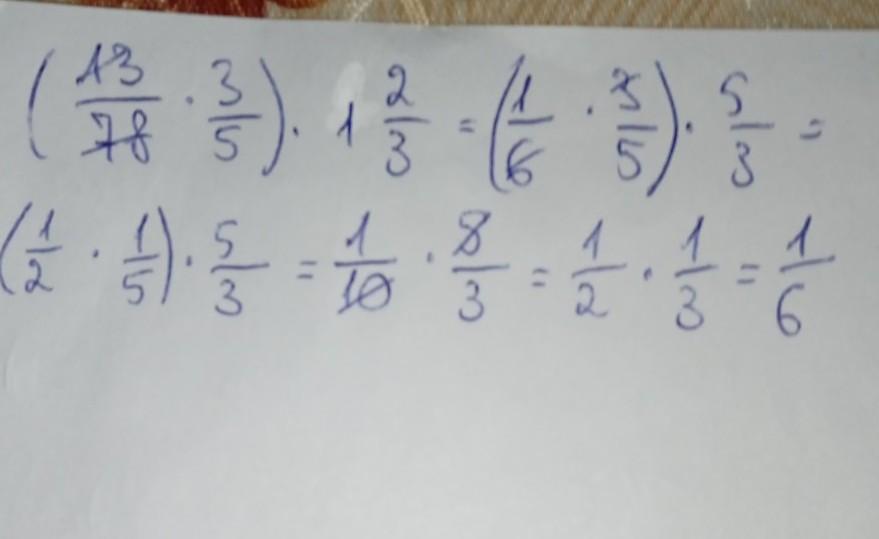 (13/78 · 3/5) · 1 2/3 = (1/6 · 3/5) · 5/3 =
(1/2 · 1/5) · 5/3 = 1/10 · 5/3 = 1/2 · 1/3 = 1/6